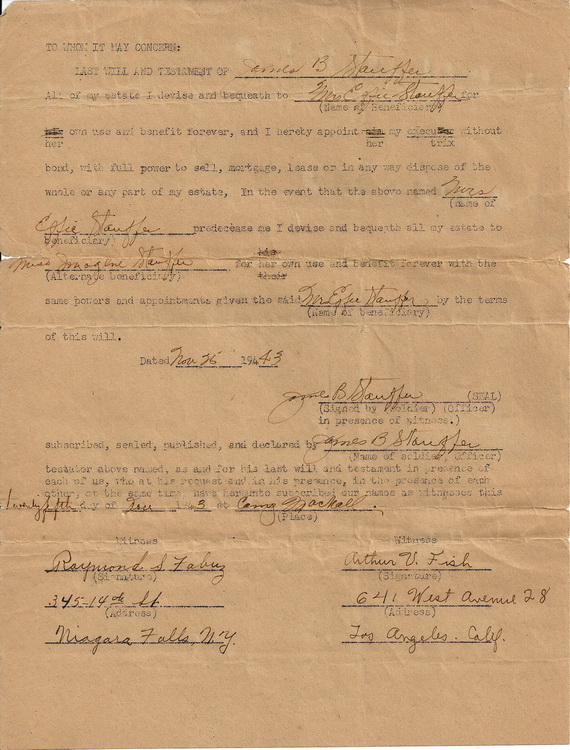 TO WHOM IT MAY CONCERN:
LAST WILL AND TESTAMENT OF James B Stauffer
All of my estate I devise and bequeath to Mrs Effie Stauffer for
(Name of Beneficiary)
his own use and benefit forever, and I hereby appoint him my executor without
her her trix
bond, with full power to sell, mortgage, lease or in any way dispose of the
whole or any part of my estate, In the event that the above named Mrs
(name of
Effie Stauffer predecease me I devise and bequeath all my estate to
beneficiary)
his
Miss Imogene Stauffer for her own use and benefit forever with the
(Alternate beneficiary) their
same powers and appointments given the said Mrs Effie Stauffer, by the terms
(Name of beneficiary)
of this will.
Dated Nov 25 1943
James B Stauffer (SEAL)
(Signed by soldier) (Officer)
in presence of witness.)
subscribed, sealed, published, and declared by James B Stauffer
(Name of soldier, Officer)
testator above named, as and for his last will and testament in presence of
each of us, who at his request and in his presence, in the presence of each
other, at the same time, have hereunto subscribed our names as witnesses this
Twenty fifth day of Nov 1943 at Camp Mackall.
(Place)
Witness Witness
Raymond S Arthur V. Fish
(Signature) (Signature)
345-14th St 641 West Avenue 28
(Address) (Address)
Niagara Falls, N.Y. Los Angeles. Calif.